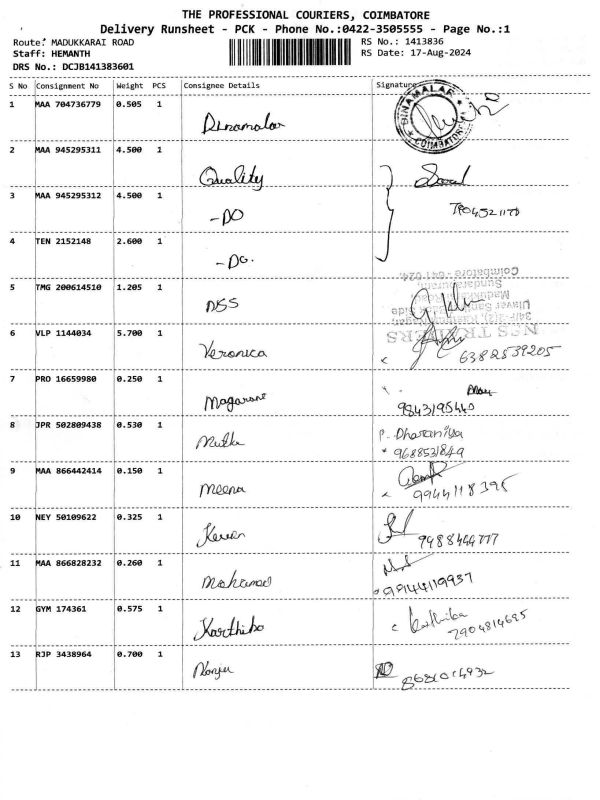 THE PROFESSIONAL COURIERS, COIMBATORE
Delivery Runsheet - PCK - Phone No.:0422-3505555 - Page No.:1
Route: MADUKKARAI ROAD
RS No.: 1413836
Staff: HEMANTH
RS Date: 17-Aug-2024
DRS No.: DCJB141383601
S No Consignment No Weight PCS Consignee Details Signature
1 MAA 704736779 0.505 1 Dinamalar DINAMALAR COIMBATORE
2 MAA 945295311 4.500 1 Quality
3 MAA 945295312 4.500 1 -DO
4 TEN 2152148 2.600 1 -DO.
5 TMG 200614510 1.205 1 NSS
Coimbatore - 641 024.
6 VLP 1144034 5.700 1 Veronica 6382539205
7 PRO 16659980 0.250 1 9843195440
8 JPR 502809438 0.530 1 P. Dharaniya
9688531849
9 MAA 866442414 0.150 1 Meena 9944118395
10 NEY 50109622 0.325 1 9488444777
11 MAA 866828232 0.260 1 Mohamad 99144119937
12 GYM 174361 0.575 1 Karthika Karthika
7904814695
13 RJP 3438964 0.700 1